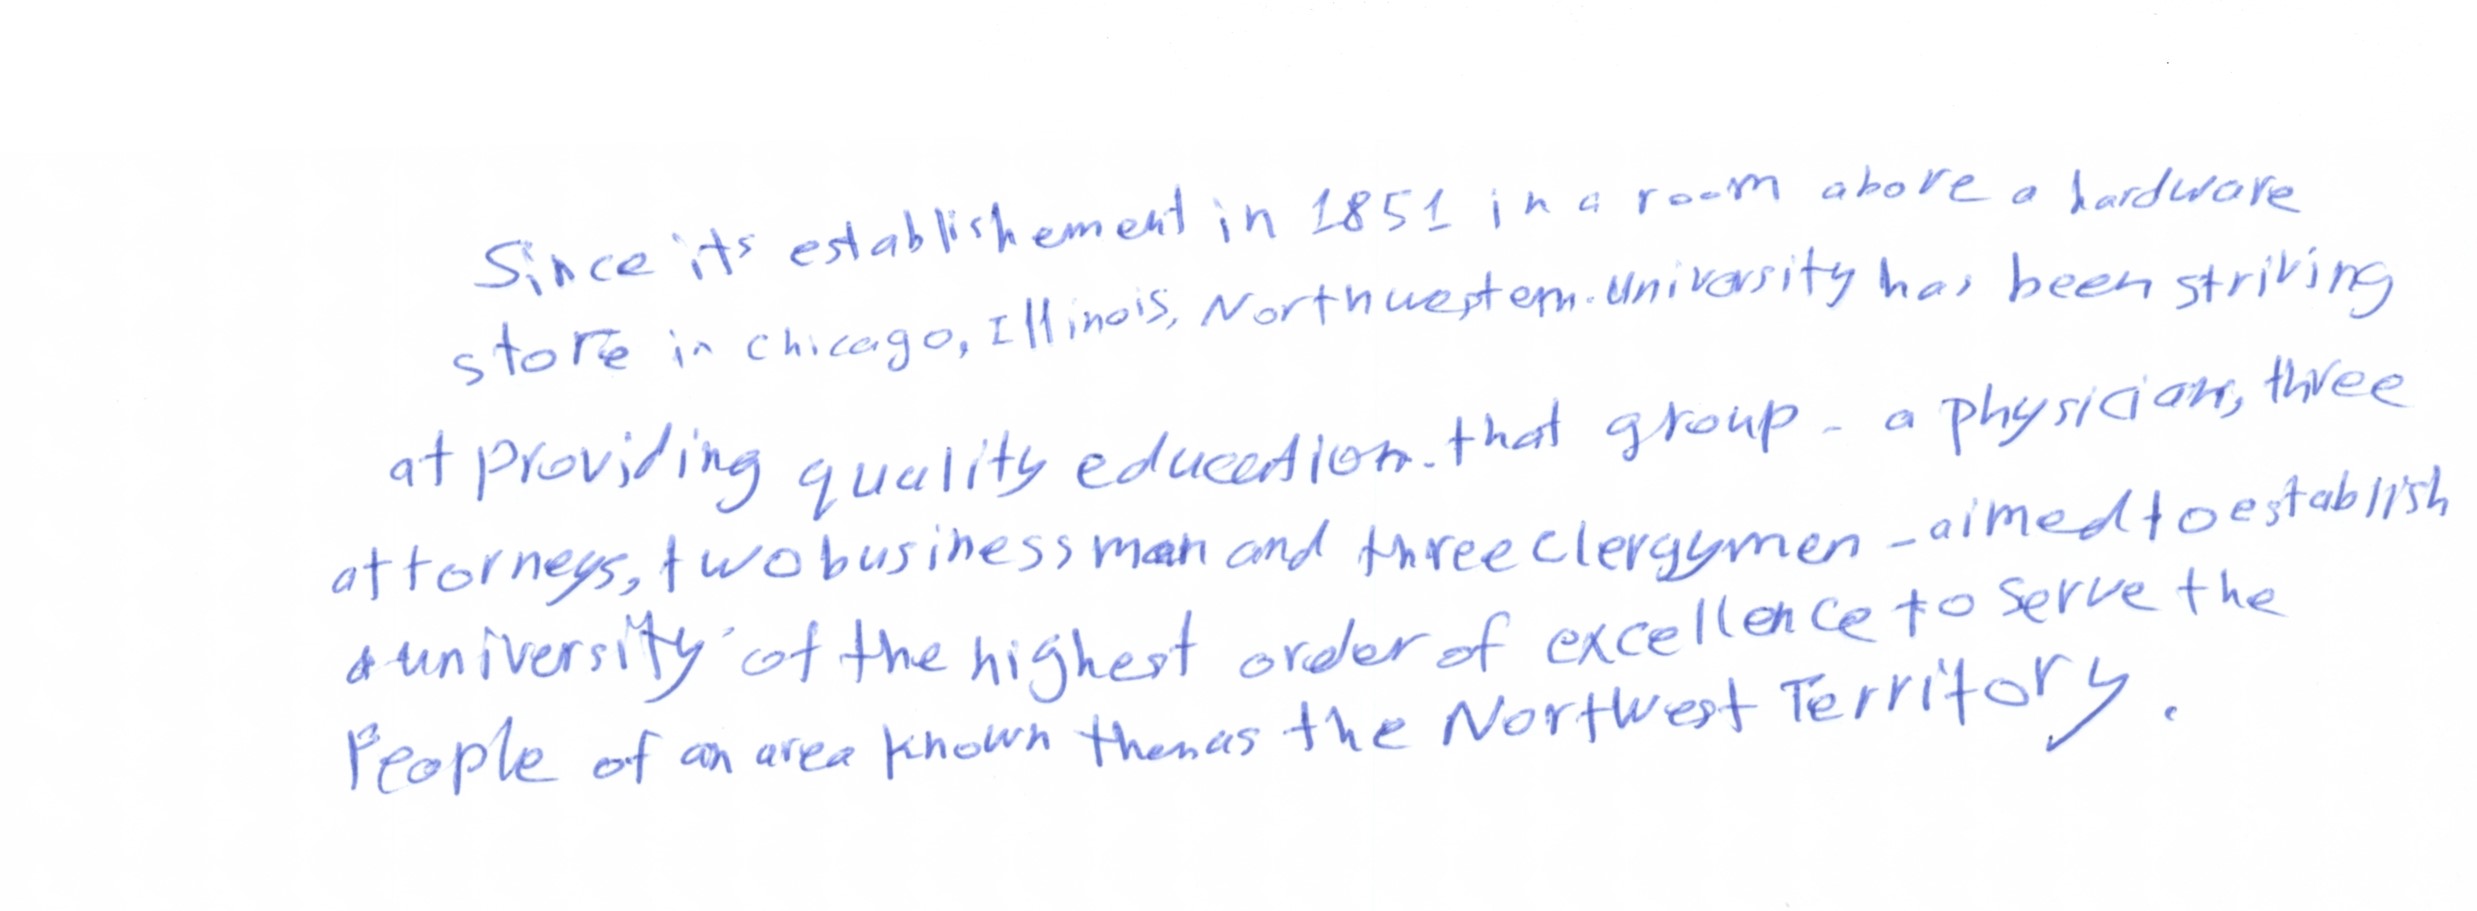 Since its establishement in 1851 in a room above a hardware
store in chicago, Illinois, Northwestern. University has been striving
at providing quality education. that group - a physician, three
attorneys, two business man and three clergymen - aimed to establish
a university of the highest order of excellence to serve the
People of an area known then as the Nortwest Territory.